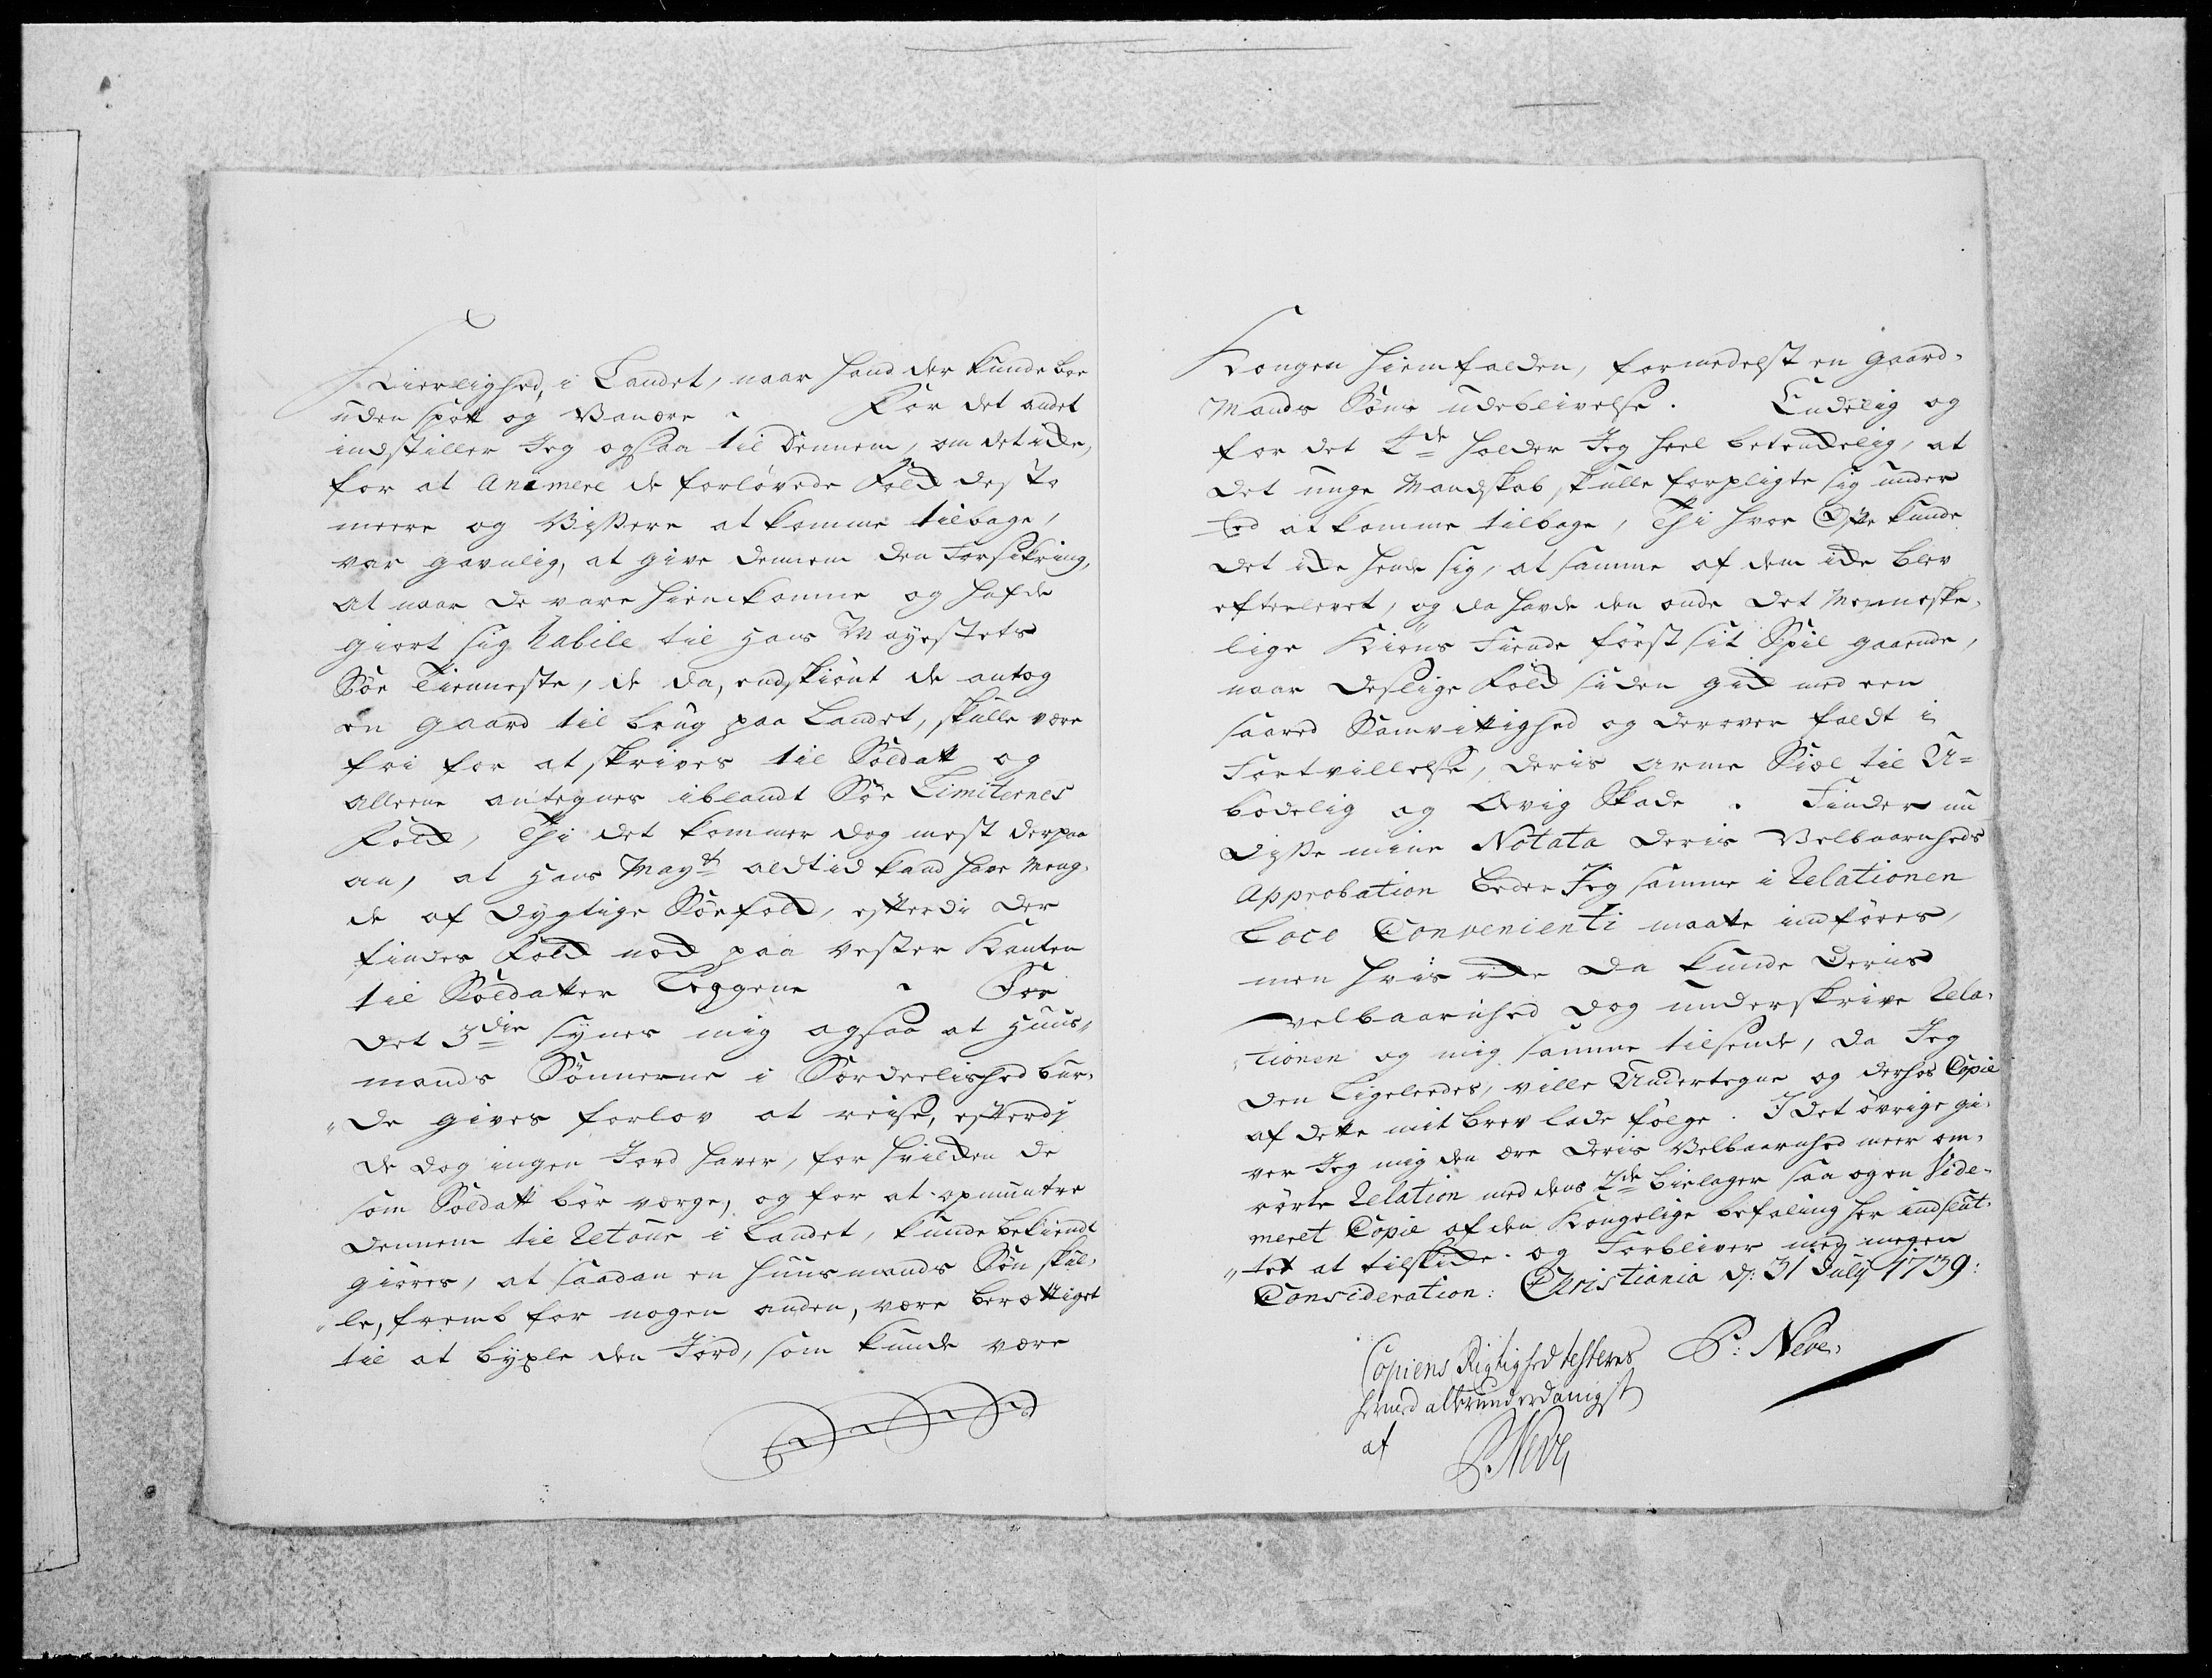 Kierlighed, i Landet, naar hand der kunde boe
uden spott og Vanære. For det andet
indstiller Jeg ogsaa til Dennem, om det icke,
for at Animere de forlovede Folck desto
meere og Vissere at komme tilbage,
var gavnlig, at give dennem den Forsikring,
at naar de vare hiemkomne og hafde
giort sig habile til Hans Mayestets
Söe Tienneste, de da, endskiönt de antog
en gaard til brug paa Landet, skulle være
fri for at skrives til Soldatt og
alleene antegnes iblandt Söe Limiternes
Folck, Thi det kommer dog mest derpaa
an, at Hans Mayt altid kand have Meng-
de af dygtige Söefolck, efterdi der
findes Folck nock paa vester Kanten
til Soldatter Leggene. For
det 3die synes mig ogsaa at Huus-
mands Sönnerne i Særdeelished bur-
de gives forlov at reise, efterdj
de dog ingen Jord haver, for hvilcken de
som Soldatt bör værge, og for at opmuntre
dennem til Retour i Landet, kunde bekiendt
giöres, at saadan en huusmands Sön skul-
le, fremb for nogen anden, være berættiget
til at byxle den Jord, som kunde være
Kongen hiemfalden, formedelst en gaard-
Mands Söns udeblivelse. Endelig og
for det 4de holder Jeg heel betenckelig, at
det unge Mandskab, skulle forpligte sig under
Eed at komme tilbage, Thi hvor Ofte kunde
det icke hende sig, at samme af dem icke blev
efterlevet, og da havde den onde det Menneske-
lige Kiöns Fiende först sit Spil gaaende,
naar deslige Folck siden gick med een
saared Samvittighed og derover faldt i
Fortvillelse, deris arme Siæl til U-
bodelig og Ævig Skade. Finder nu
disse mine Notata deris Velbaarnheds
Approbation beder Jeg samme i Relationen
Loco Convenienti maatte indföres,
men hvis icke da kunde Deris
velbaarnhed dog underskrive Rela-
tionen og mig samme tilsende, da Jeg
den Ligeleedes, ville Undertegne og derhos Copie
af dette mit brev lade fölge. I det övrige gi-
ver Jeg mig den ære Deris Velbaarnhed meer om-
rörte Relation med dens 2de bielager saa og en Vide-
meret Copie af den Kongelige befaling her indslut-
tet at tilskicke. og Forbliver med megen
Consideration: Christiania d: 31 July 1739:
P: Neve.
Copiens Rigtighed testeres
herved allerunderdanigst
af
P Neve